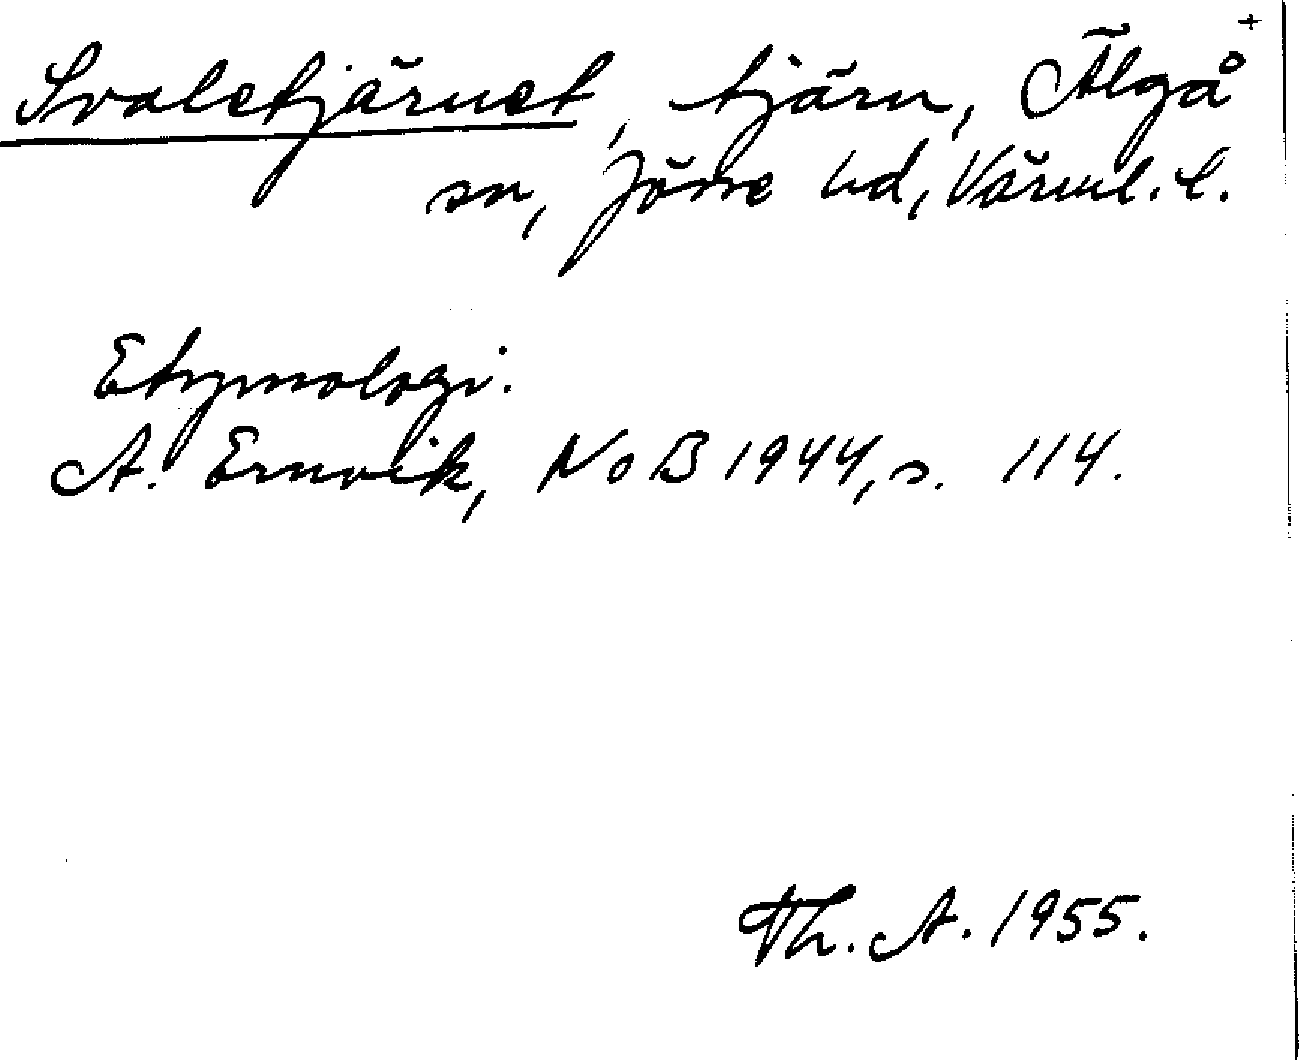 Svaletjärnet, tjärn, Älgå +
sn, Jösse hd, Värml. l.
Etymologi.
A. Ernvik, NoB 1944, s. 114.
Th. A. 1955.